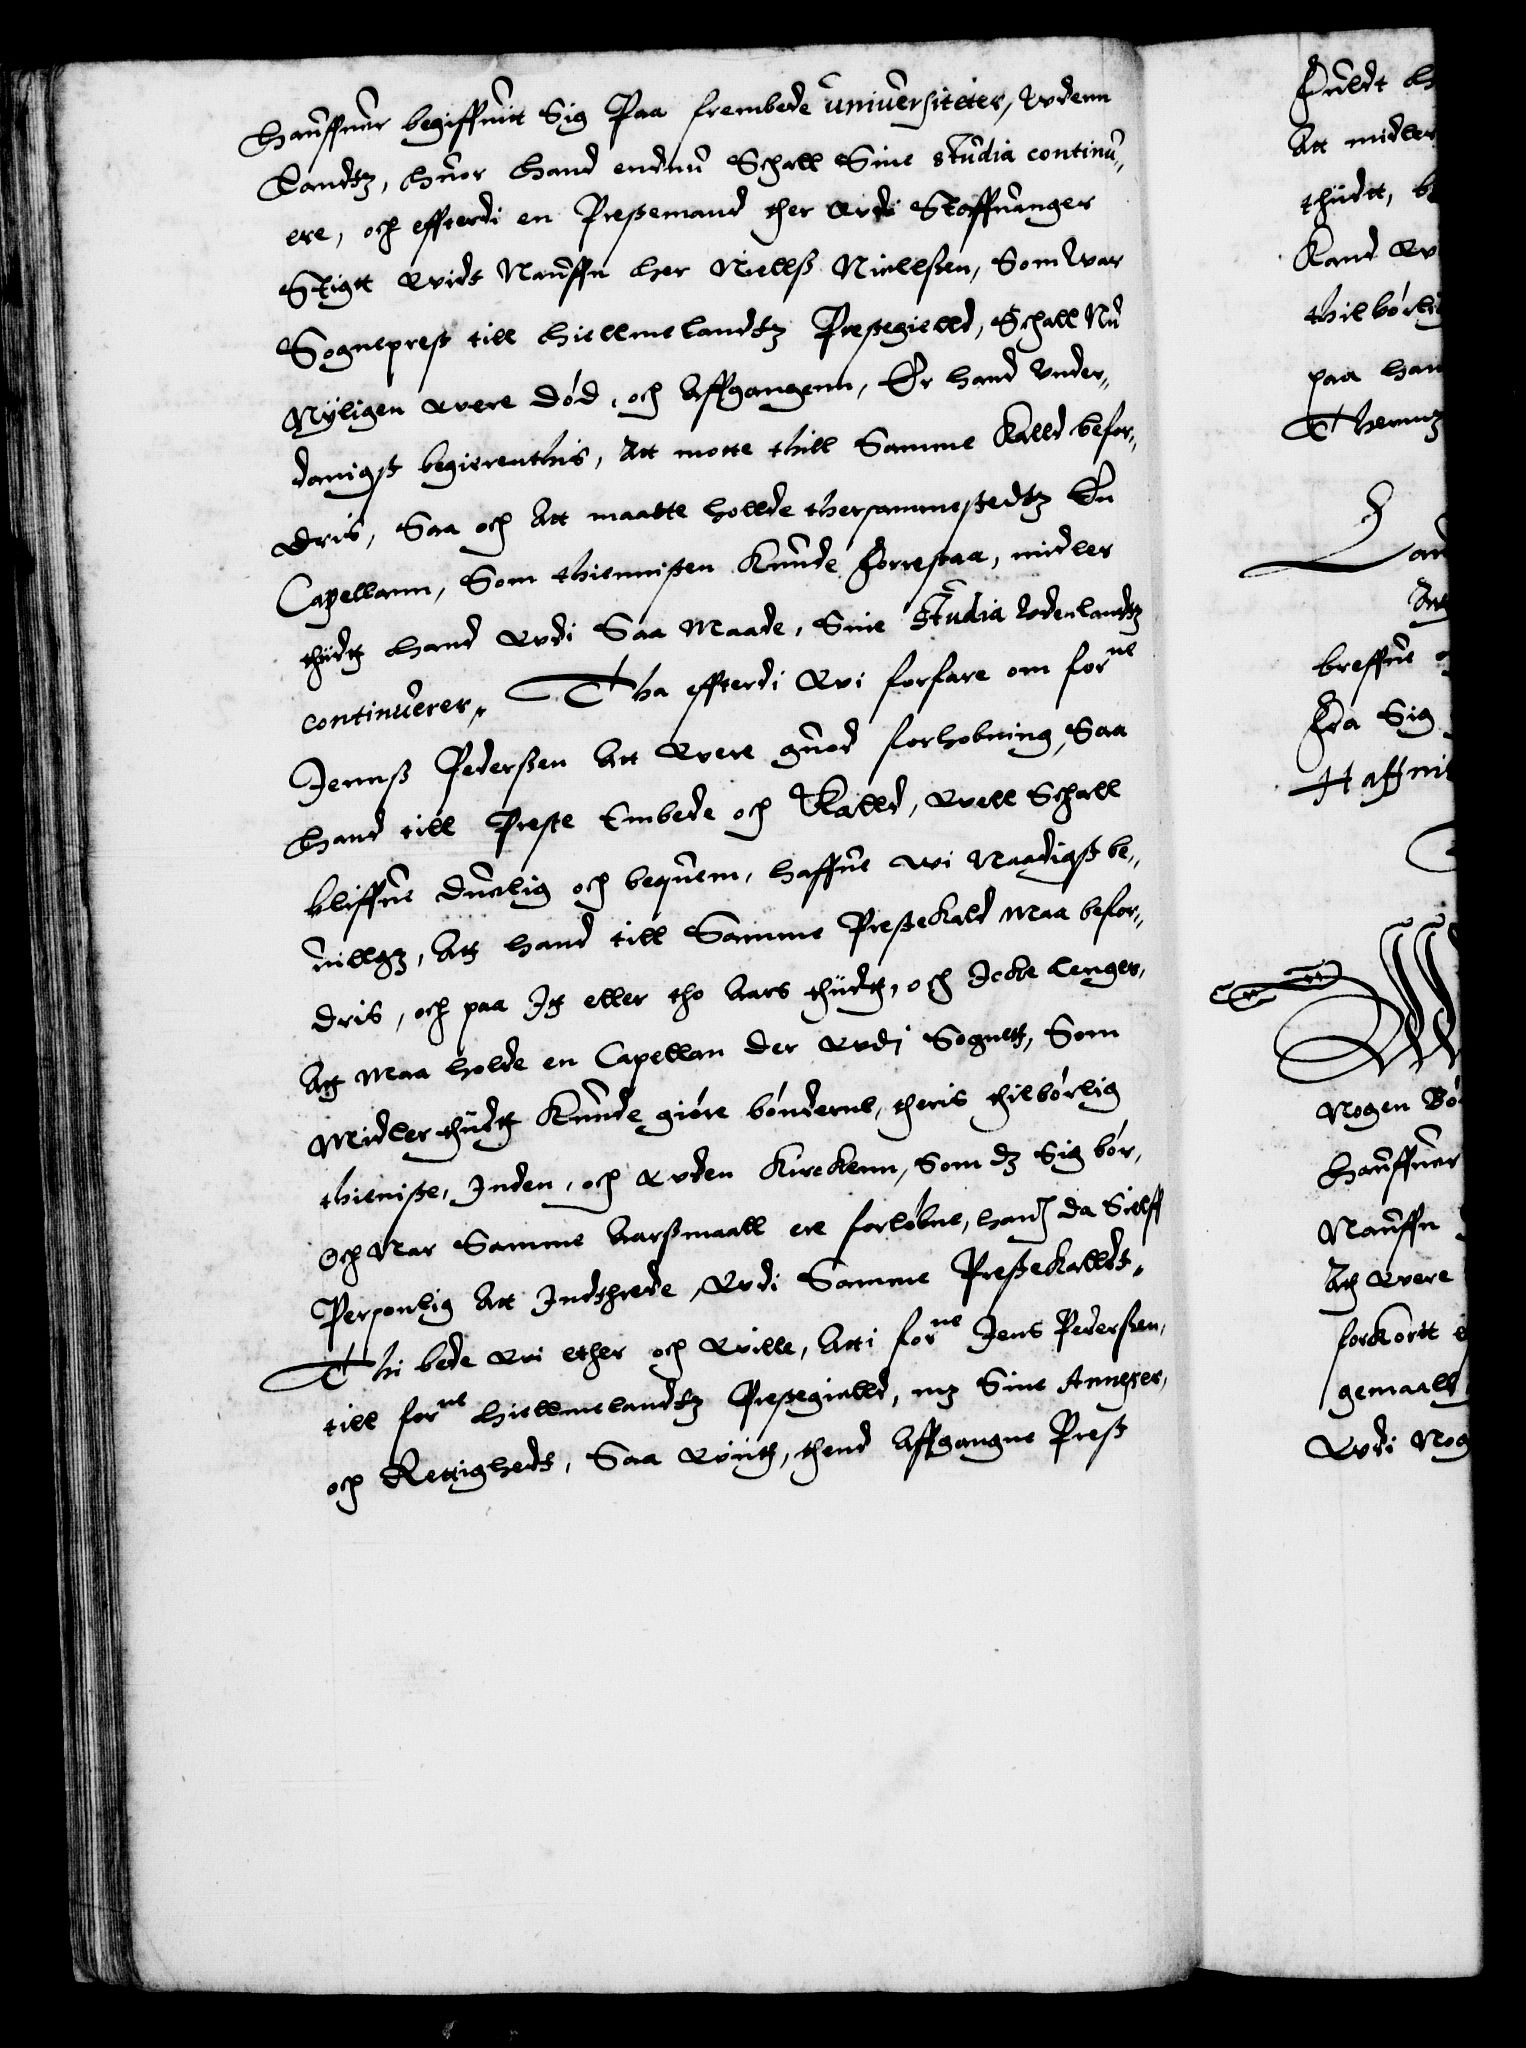 Hauffuer begiffuitt Sig Paa frembede universiteter, Vdenn
Landtz, huor hand endnu Schall Sine studia continu,,
ere, och effterdi en Prestemand ther Vdi Staffuanger
Stigtt Widt Nauffn Her Niellß Niellßen, Som War
Sogneprest till Hiellmelandtz Prestegielld, Schall Nu
Nyligen Were Död, och Affgangenn, Er hand Vnder,,
danigst begierenthis, Att motte thill Samme Kalld befor,,
dris, Saa och Att maatte hollde thersammestedtz En
Capellann, Som thiennisten Kunde Forrestaa, midler
thiidtt Hand Vdi Saa Maade, Sine Studia Vdenlandtz
continuerer, Tha effterdi Wi forfare om forne
Jennß Pederßen Att Were guod forhobning, Saa
Hand till Preste Embede och Kalld, Well Schall
bliffue Duelig och bequem, haffue Wi Naadigst be,,
uillgtt, Att Hand till Samme Prestekald Maa befor,,
dris, och paa It eller tho Aars thiidtt, och Icke lenger,
Att Maa holde en Capellan der Vdj Sognett, Som
Midler thiidtt Kunde giöre böndernе, theris thilbörlig
thieniste, Inden, och Vden Kirckenn, Som dz Sig bör,
Och Nar Samme Aarßmaall ere forlöbne, hand da Sielff
Personlig Att Indthrede Vdi Samme Prestekalldt,
Thi bede Wi ether och Wille, Att i forne Jens Pederßen,
till forne Hiellmelandtz Prestegielld, mz Sine Annexer,
och Rettighedt, Saa Viitt, thend Affgangne Prest
Fuldt
Att midler
thiidtt,
Kand
thilbörlig
paa
Thermz
breffue
Fra Sig
Haffni
Nogen
Hauffuer
Nauffn
Att Were
forkortt
gemaall
Vdi Nog